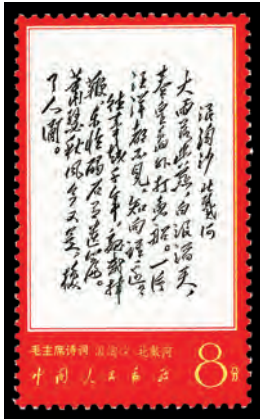 浪淘沙 北戴河
大雨落幽燕,白浪滔天,
秦皇岛外打鱼船。一片
汪洋都不见,知向谁边?
往事越千年,魏武挥
鞭,东临碣石有遗篇。
萧瑟秋风今又是,换
了人间。
毛主席诗词 浪淘沙 北戴河
中国人民邮政 8分